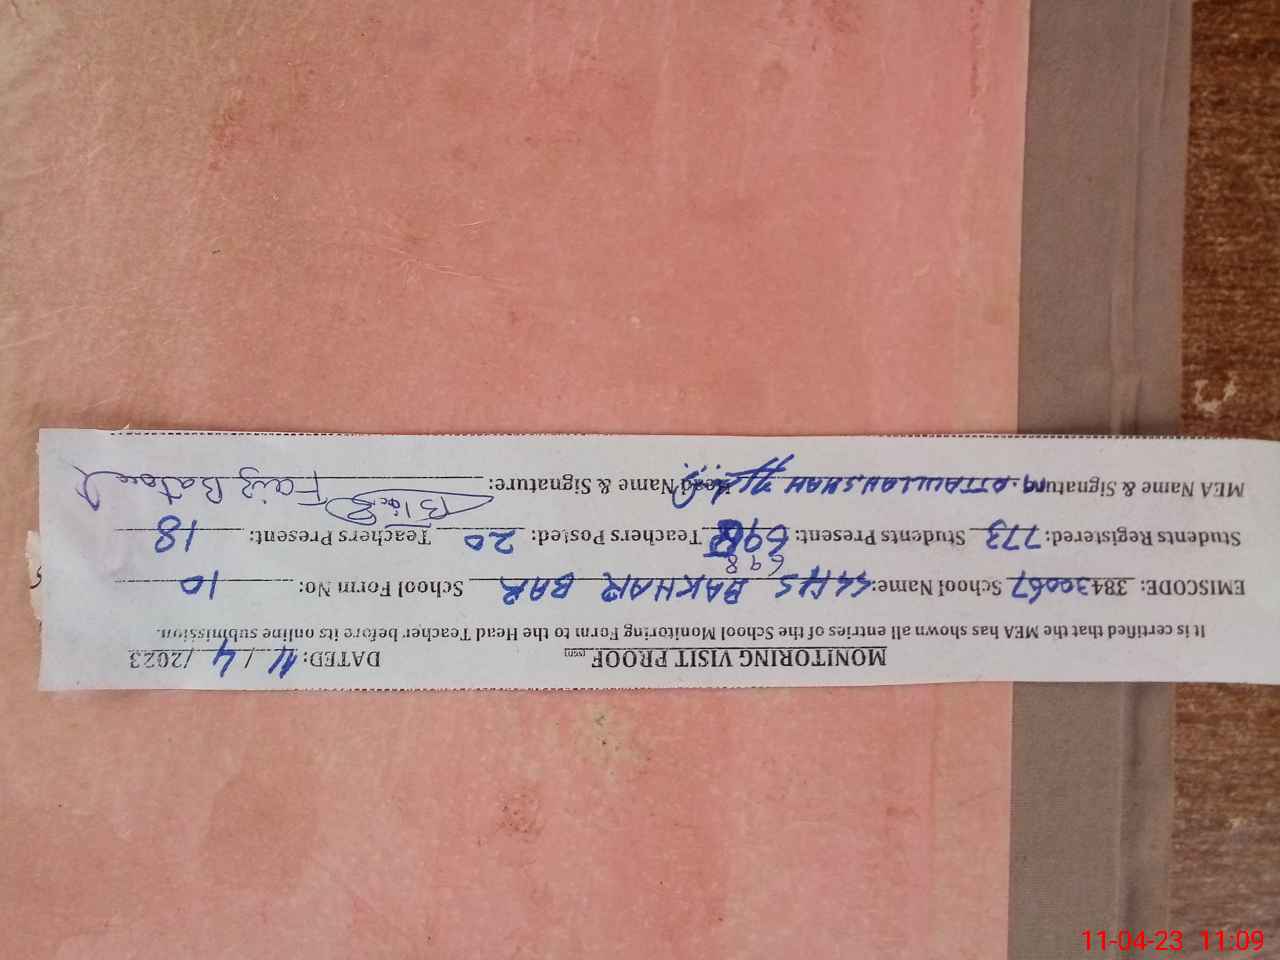 MONITORING VISIT PROOF DATED: 11 / 4 / 2023
It is certified that the MEA has shown all entries of the School Monitoring Form to the Head Teacher before its online submission.
EMISCODE: 38430067 School Name: GGHS BAKHAR BAR School Form No: 10
698
Students Registered: 773 Students Present: 698 Teachers Posted: 20 Teachers Present: 18
MEA Name & Signature Head Name & Signature: Faiz Batool
11-04-23 11:09